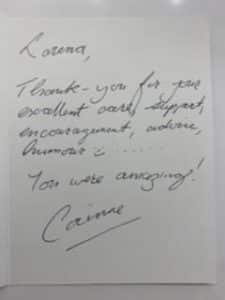 Lorena,
Thank-you for your
excellent care, support,
encouragement, advice,
humour & ......
You were amazing!
Corinne